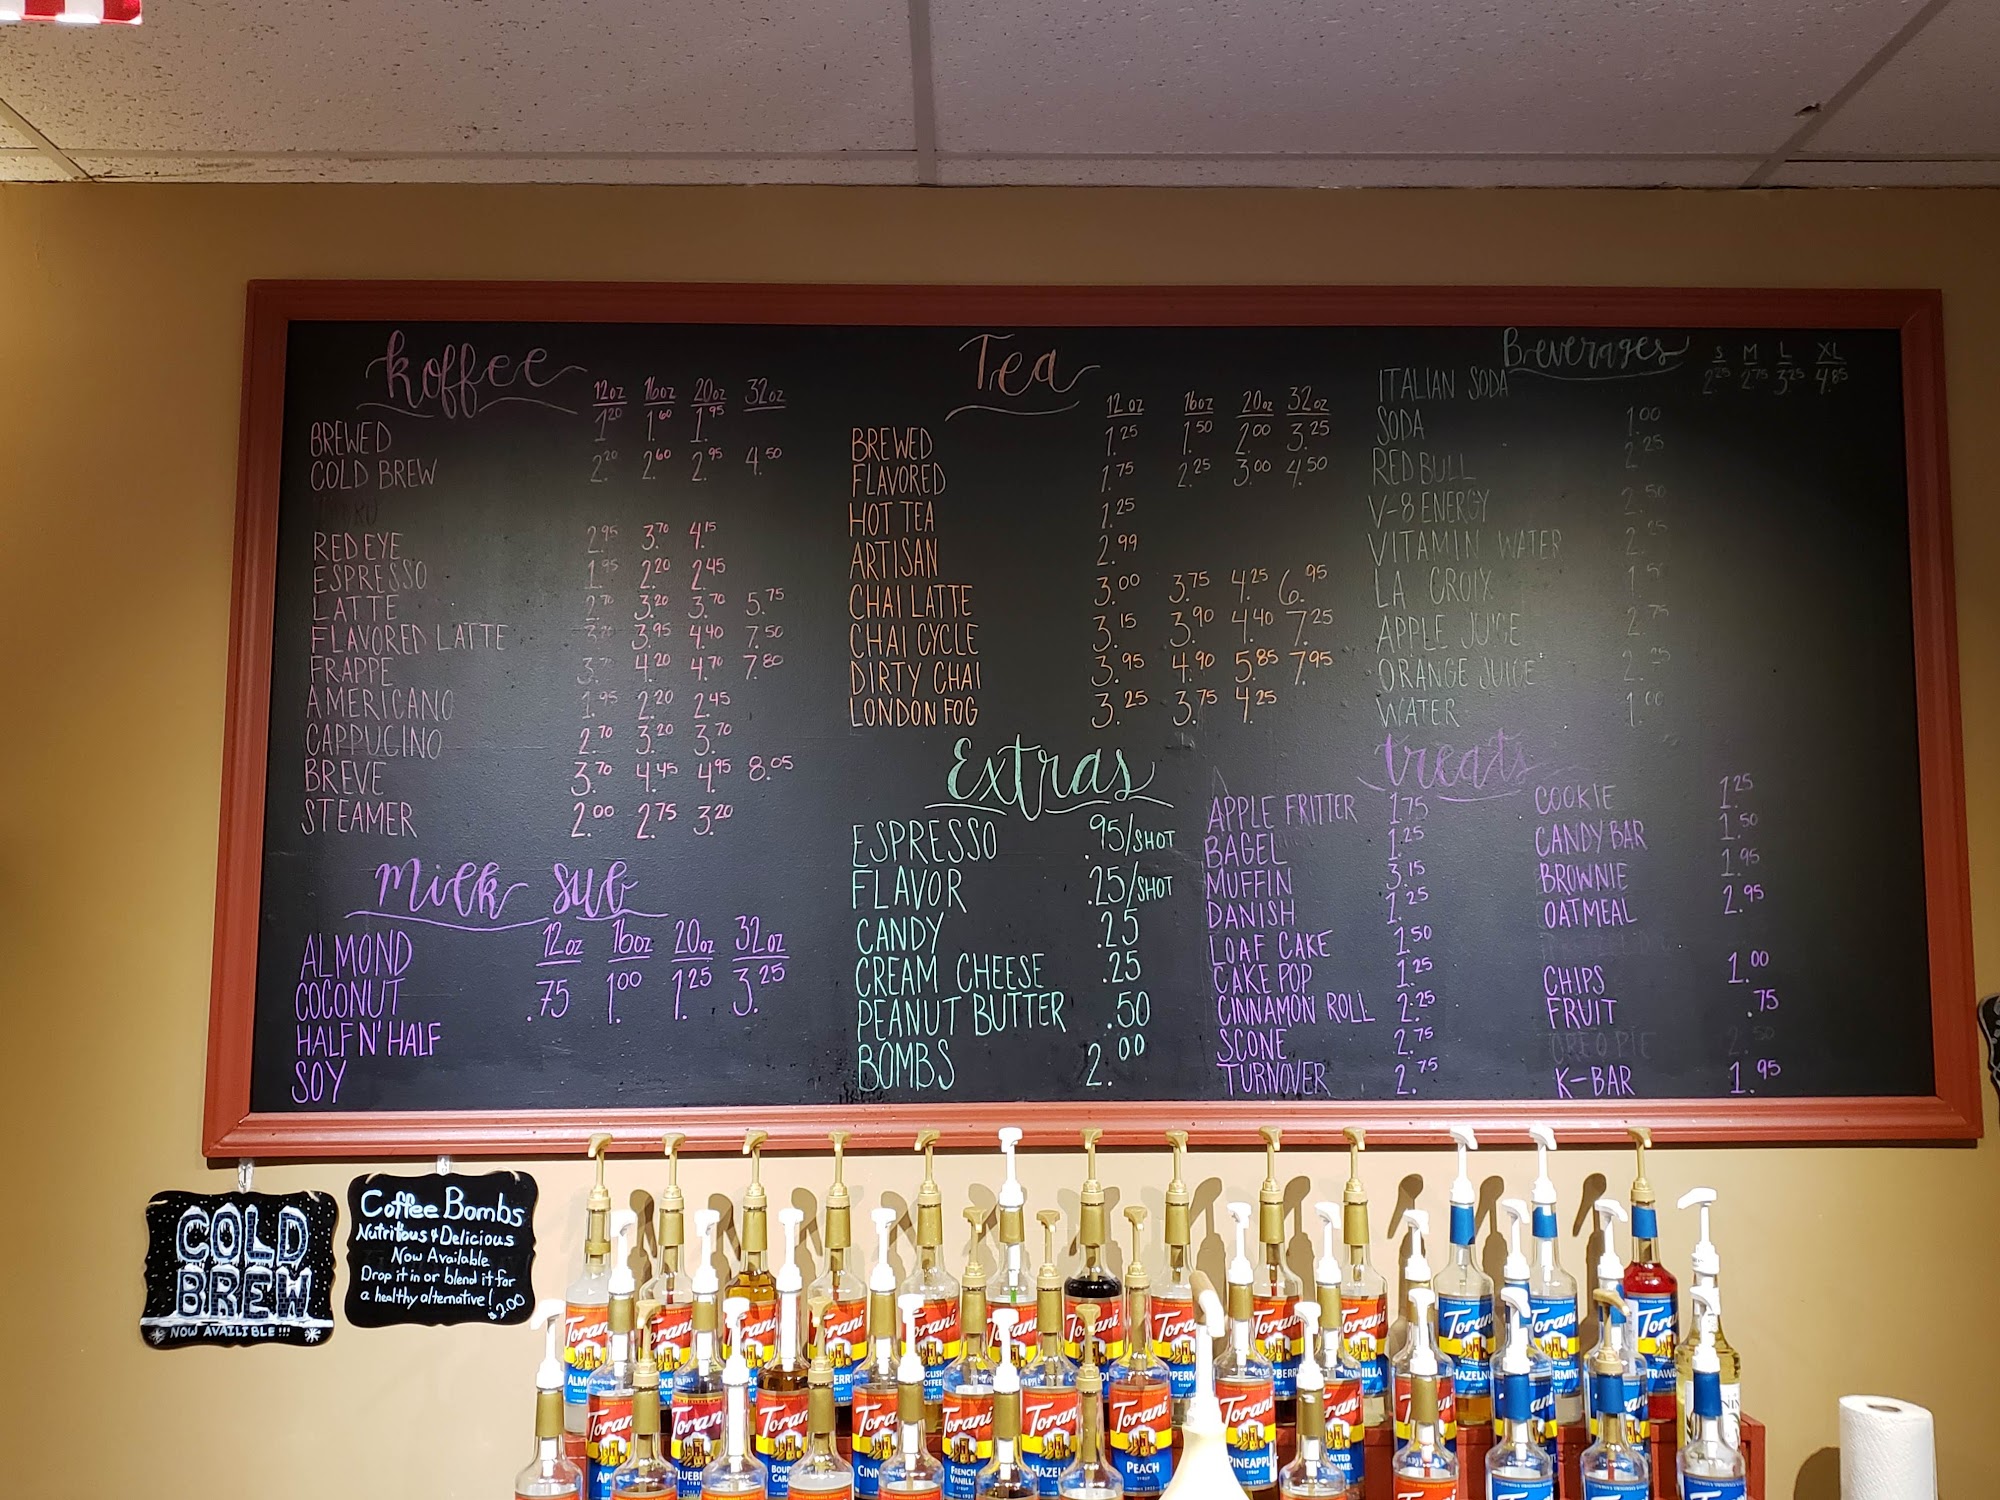 Koffee
12oz 16oz 20oz 32oz
BREWED 1.20 1.60 1.95
COLD BREW 2.20 2.60 2.95 4.50
RED EYE 2.95 3.70 4.15
ESPRESSO 1.95 2.20 2.45
LATTE 2.70 3.20 3.70 5.75
FLAVORED LATTE 3.95 4.40 7.50
FRAPPE 4.20 4.70 7.80
AMERICANO 1.95 2.20 2.45
CAPPUCINO 2.70 3.20 3.70
BREVE 3.70 4.45 4.95 8.05
STEAMER 2.00 2.75 3.20
Milk Sub
12oz 16oz 20oz 32oz
ALMOND
COCONUT .75 1.00 1.25 3.25
HALF N' HALF
SOY
Tea
12oz 16oz 20oz 32oz
BREWED 1.25 1.50 2.00 3.25
FLAVORED 1.75 2.25 3.00 4.50
HOT TEA 1.25
ARTISAN 2.99
CHAI LATTE 3.00 3.75 4.25 6.95
CHAI CYCLE 3.15 3.90 4.40 7.25
DIRTY CHAI 3.95 4.90 5.85 7.95
LONDON FOG 3.25 3.75 4.25
Extras
ESPRESSO .95/SHOT
FLAVOR .25/SHOT
CANDY .25
CREAM CHEESE .25
PEANUT BUTTER .50
BOMBS 2.00
Beverages
S M L XL
ITALIAN SODA 2.25 2.75 3.25 4.85
SODA 1.00
REDBULL 2.25
V-8 ENERGY 2.50
VITAMIN WATER 2.25
LA CROIX
APPLE JUICE 2.75
ORANGE JUICE 2.25
WATER 1.00
treats
APPLE FRITTER 1.75
BAGEL 1.25
MUFFIN 3.15
DANISH 1.25
LOAF CAKE 1.50
CAKE POP 1.25
CINNAMON ROLL 2.25
SCONE 2.75
TURNOVER 2.75
COOKIE 1.25
CANDY BAR 1.50
BROWNIE 1.95
OATMEAL 2.95
CHIPS 1.00
FRUIT .75
OREO PIE 2.50
K-BAR 1.95
COLD
BREW
NOW AVAILIBLE!!!
Coffee Bombs
Nutritious & Delicious
Now Available
Drop it in or blend it for
a healthy alternative! $2.00
Torani
Torani
Torani
Torani
FRENCH
VANILLA
Torani
PEACH
Torani
PINEAPPLE
Torani
Torani